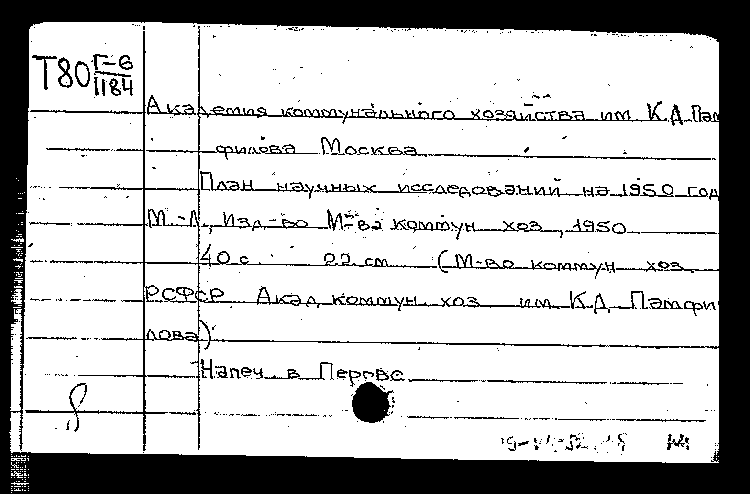 Т80 Г-6
1184
Академия коммунального хозяйства им К.Д. Пам
филова Москва
План научных исследований на 1950 год
М.-Л., Изд-во М-ва коммун хоз, 1950
40 с. 22 см (М-во коммун хоз.
РСФСР Акад. коммун. хоз им. К.Д. Памфи
лова)
Напеч. в Перове